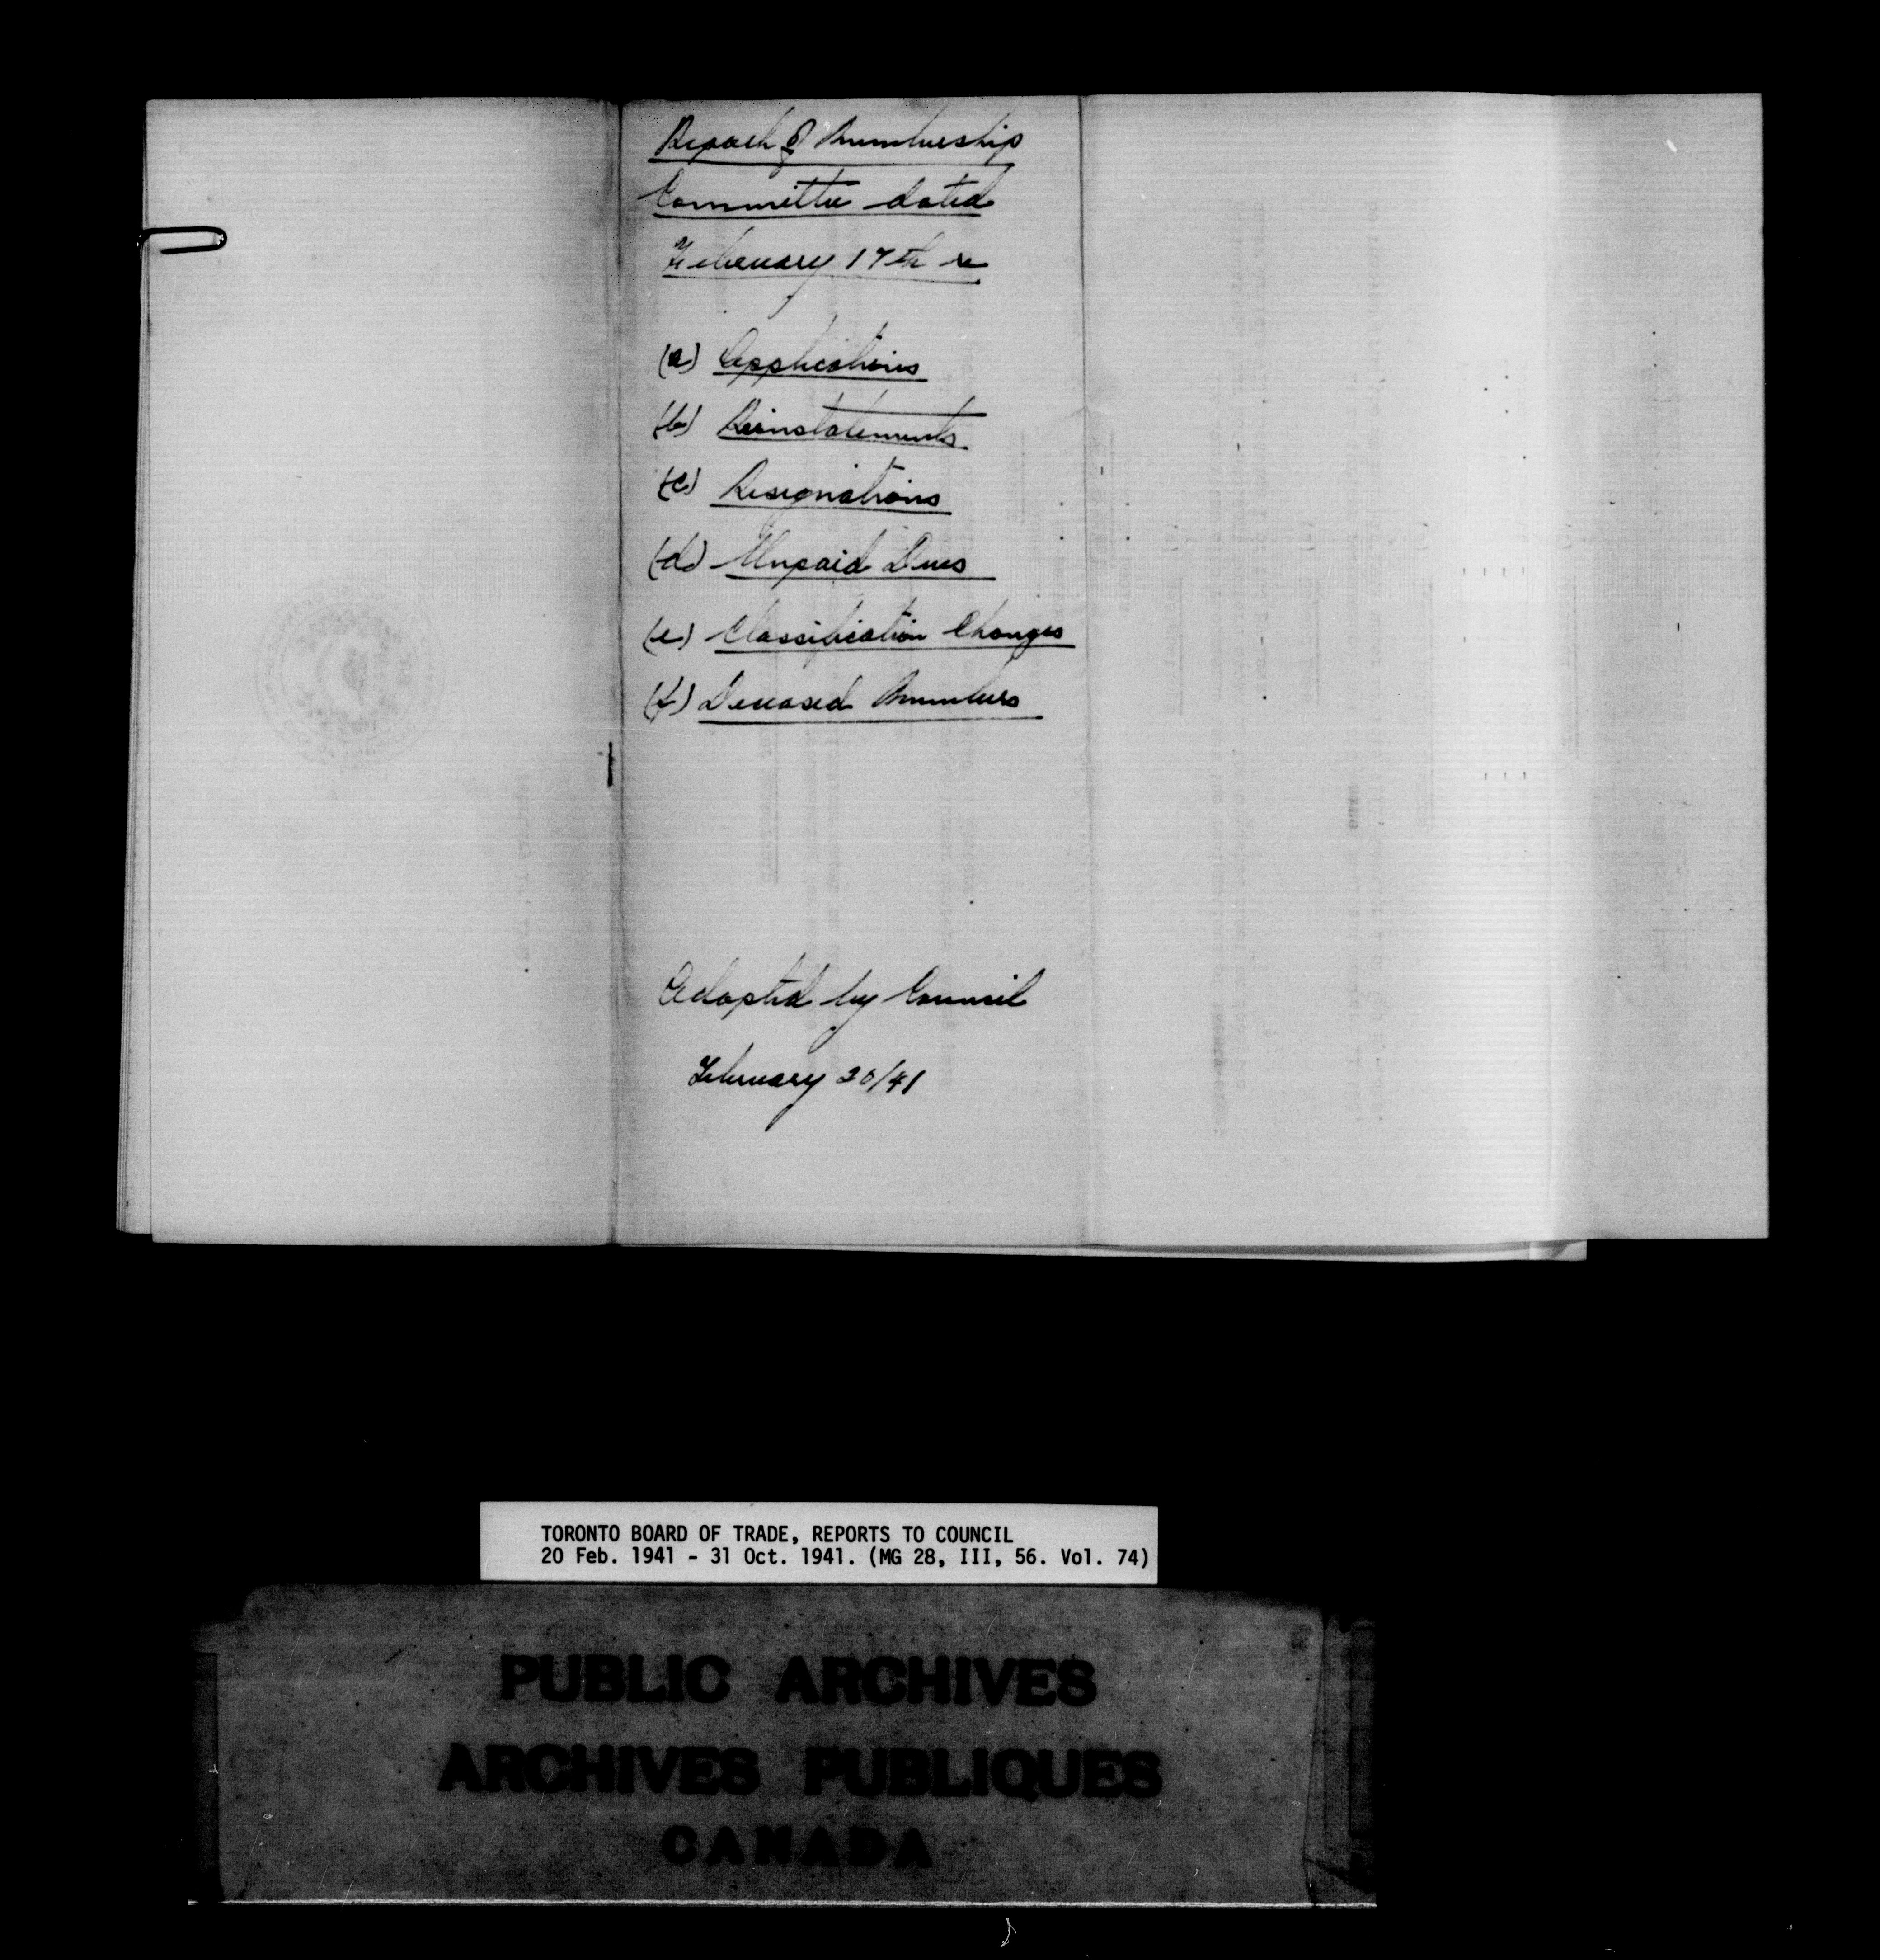 Report of Membership
Committee dated
February 17th re
(a) Applications
(b) Reinstatements
(c) Resignations
(d) Unpaid Dues
(e) Classification Changes
(f) Deceased Members
Adopted by Council
February 20/41
TORONTO BOARD OF TRADE, REPORTS TO COUNCIL
20 Feb. 1941 - 31 Oct. 1941. (MG 28, III, 56. Vol. 74)
PUBLIC ARCHIVES
ARCHIVES PUBLIQUES
CANADA